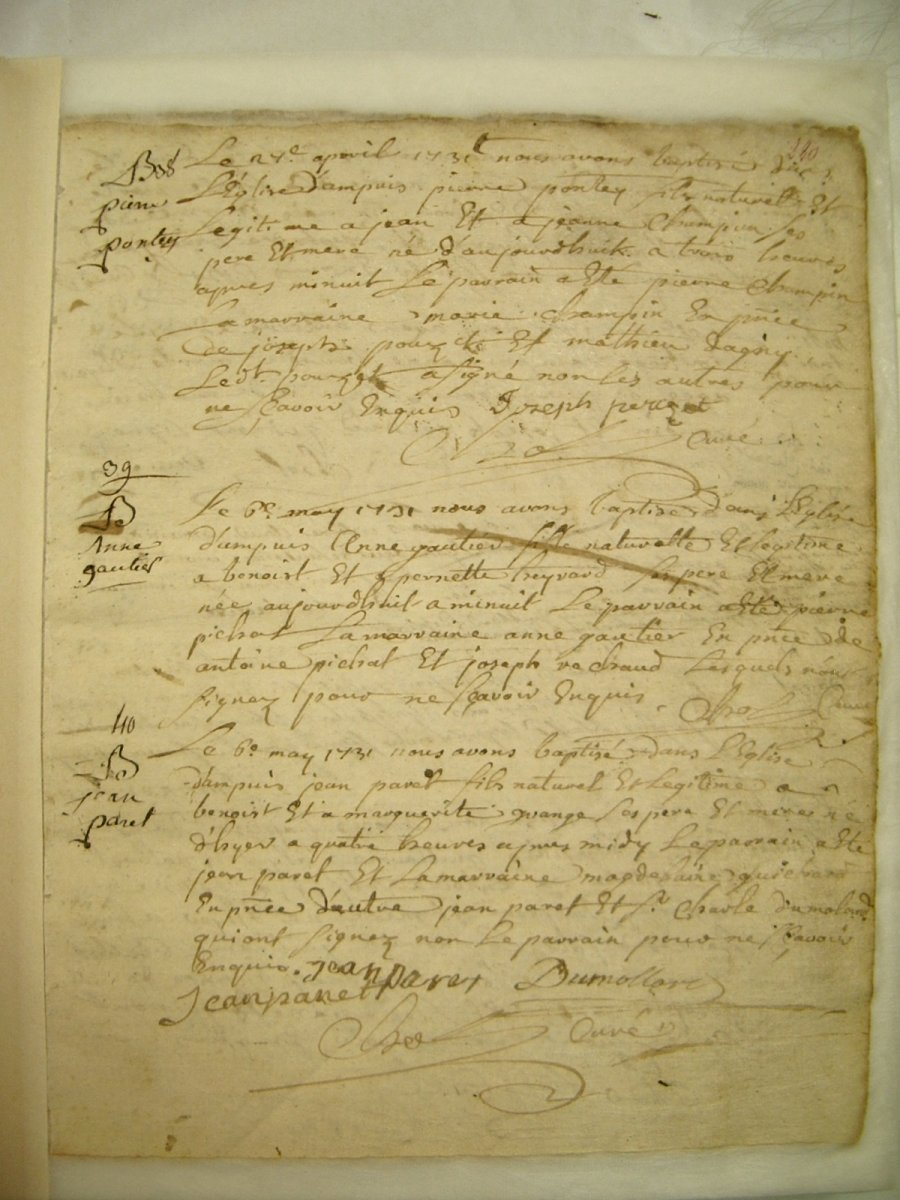 140
B 38
pierre
pontey
Le 27e apvril 1731 nous avons baptisé dans
L'Eglise d'ampuis pierre pontey fils naturel Et
Legitime a jean Et a jeanne Champin ses
pere Et mere né d'aujourdhuit a trois heures
apres minuit Le parrain a Eté pierre Champin
La marraine marie Champin En pnce
de joseph pourzet Et mathieu Dagny
Ledt. pourzet a signé non les autres pour
ne sçavoir Enquis Joseph
Curé
39
B
Anne
gautier
Le 6e may 1731 nous avons baptisé dans L'Eglise
d'ampuis Anne gautier fille naturelle Et legitime
a benoist Et pernette heyrard ses pere Et mere
née aujourdhuit a minuit Le parrain a Eté pierre
pichat La marraine anne gautier En pnce de
antoine pichat Et joseph rechaud Lesquels n'ont
signez pour ne sçavoir Enquis
Curé
40
B
jean
paret
Le 6e may 1731 nous avons baptisé dans L'Eglise
d'ampuis jean paret fils naturel Et Legitime a
benoist Et a marguerite ses pere Et mere né
d'hyer a quatre heures apres midy Le parrain a Eté
jean paret Et La marraine magdelaine
En pnce d'autre jean paret Et Sr. Charle dumolard
qui ont signez non Le parrain pour ne sçavoir
Enquis. jean paret
Jean paret Dumollard
Curé